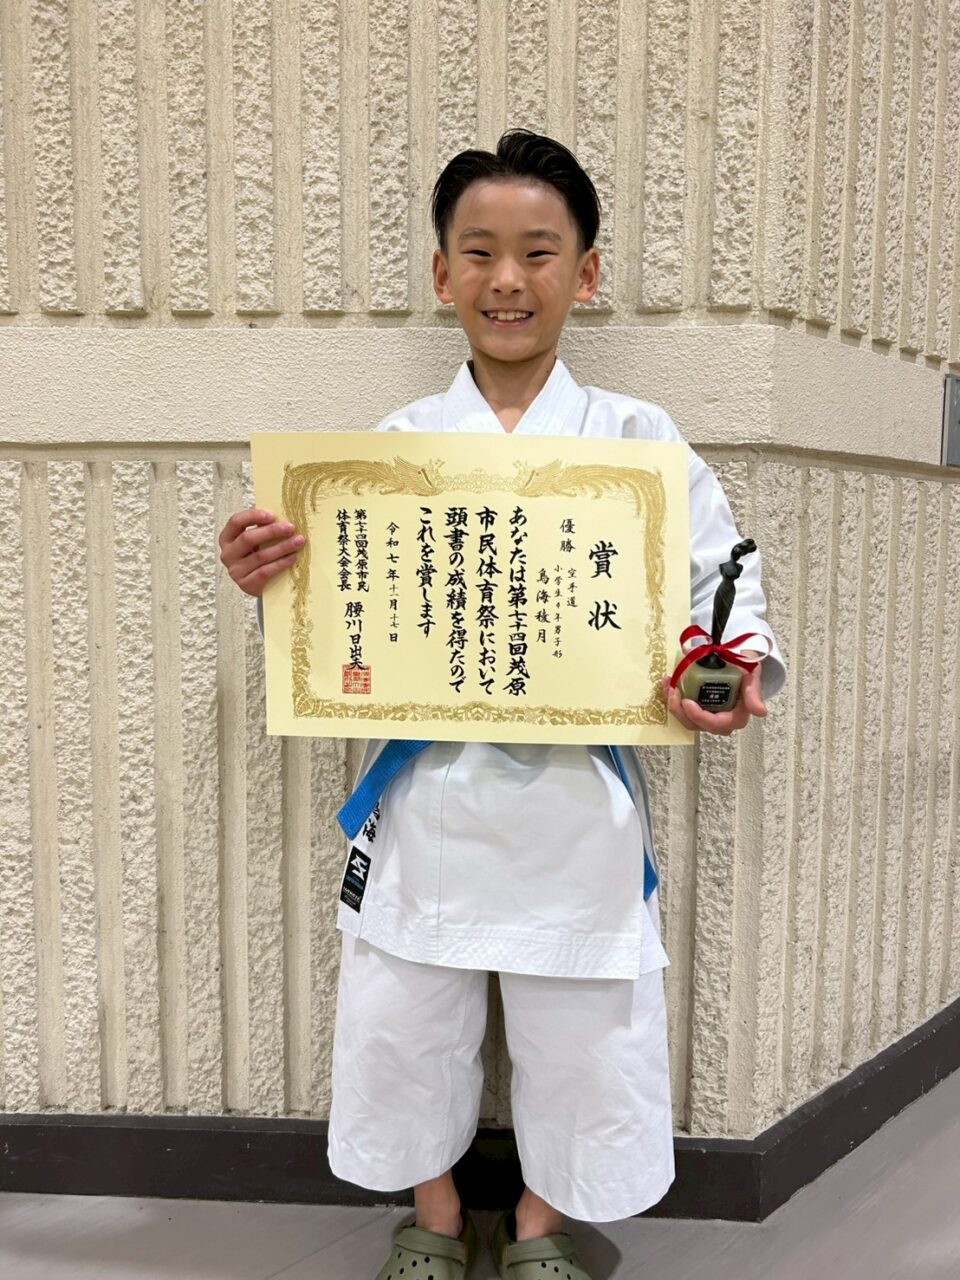 賞状
優勝
空手道
小学生4年男子形
鳥海稜月
あなたは第七十四回茂原
市民体育祭において
頭書の成績を得たので
これを賞します
令和七年十一月十七日
第七十四回茂原市民
体育祭大会会長
腰川日出夫
優勝
海